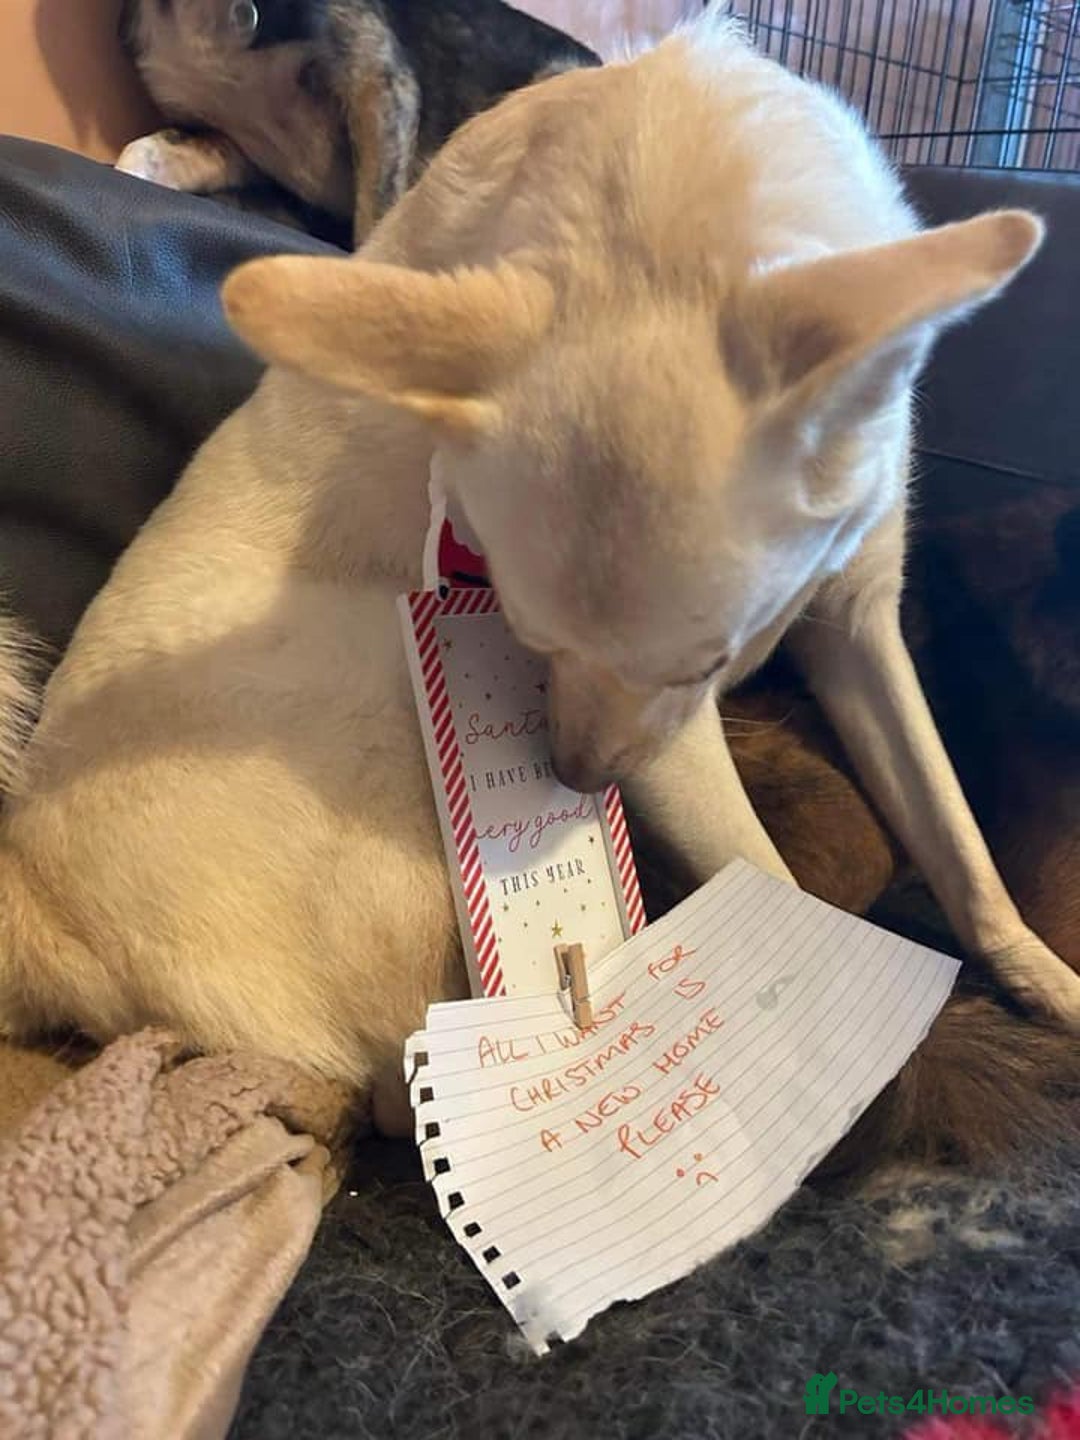 Santa
I HAVE
very good
THIS YEAR
ALL I WANT FOR
CHRISTMAS IS
A NEW HOME
PLEASE
Pets4Homes